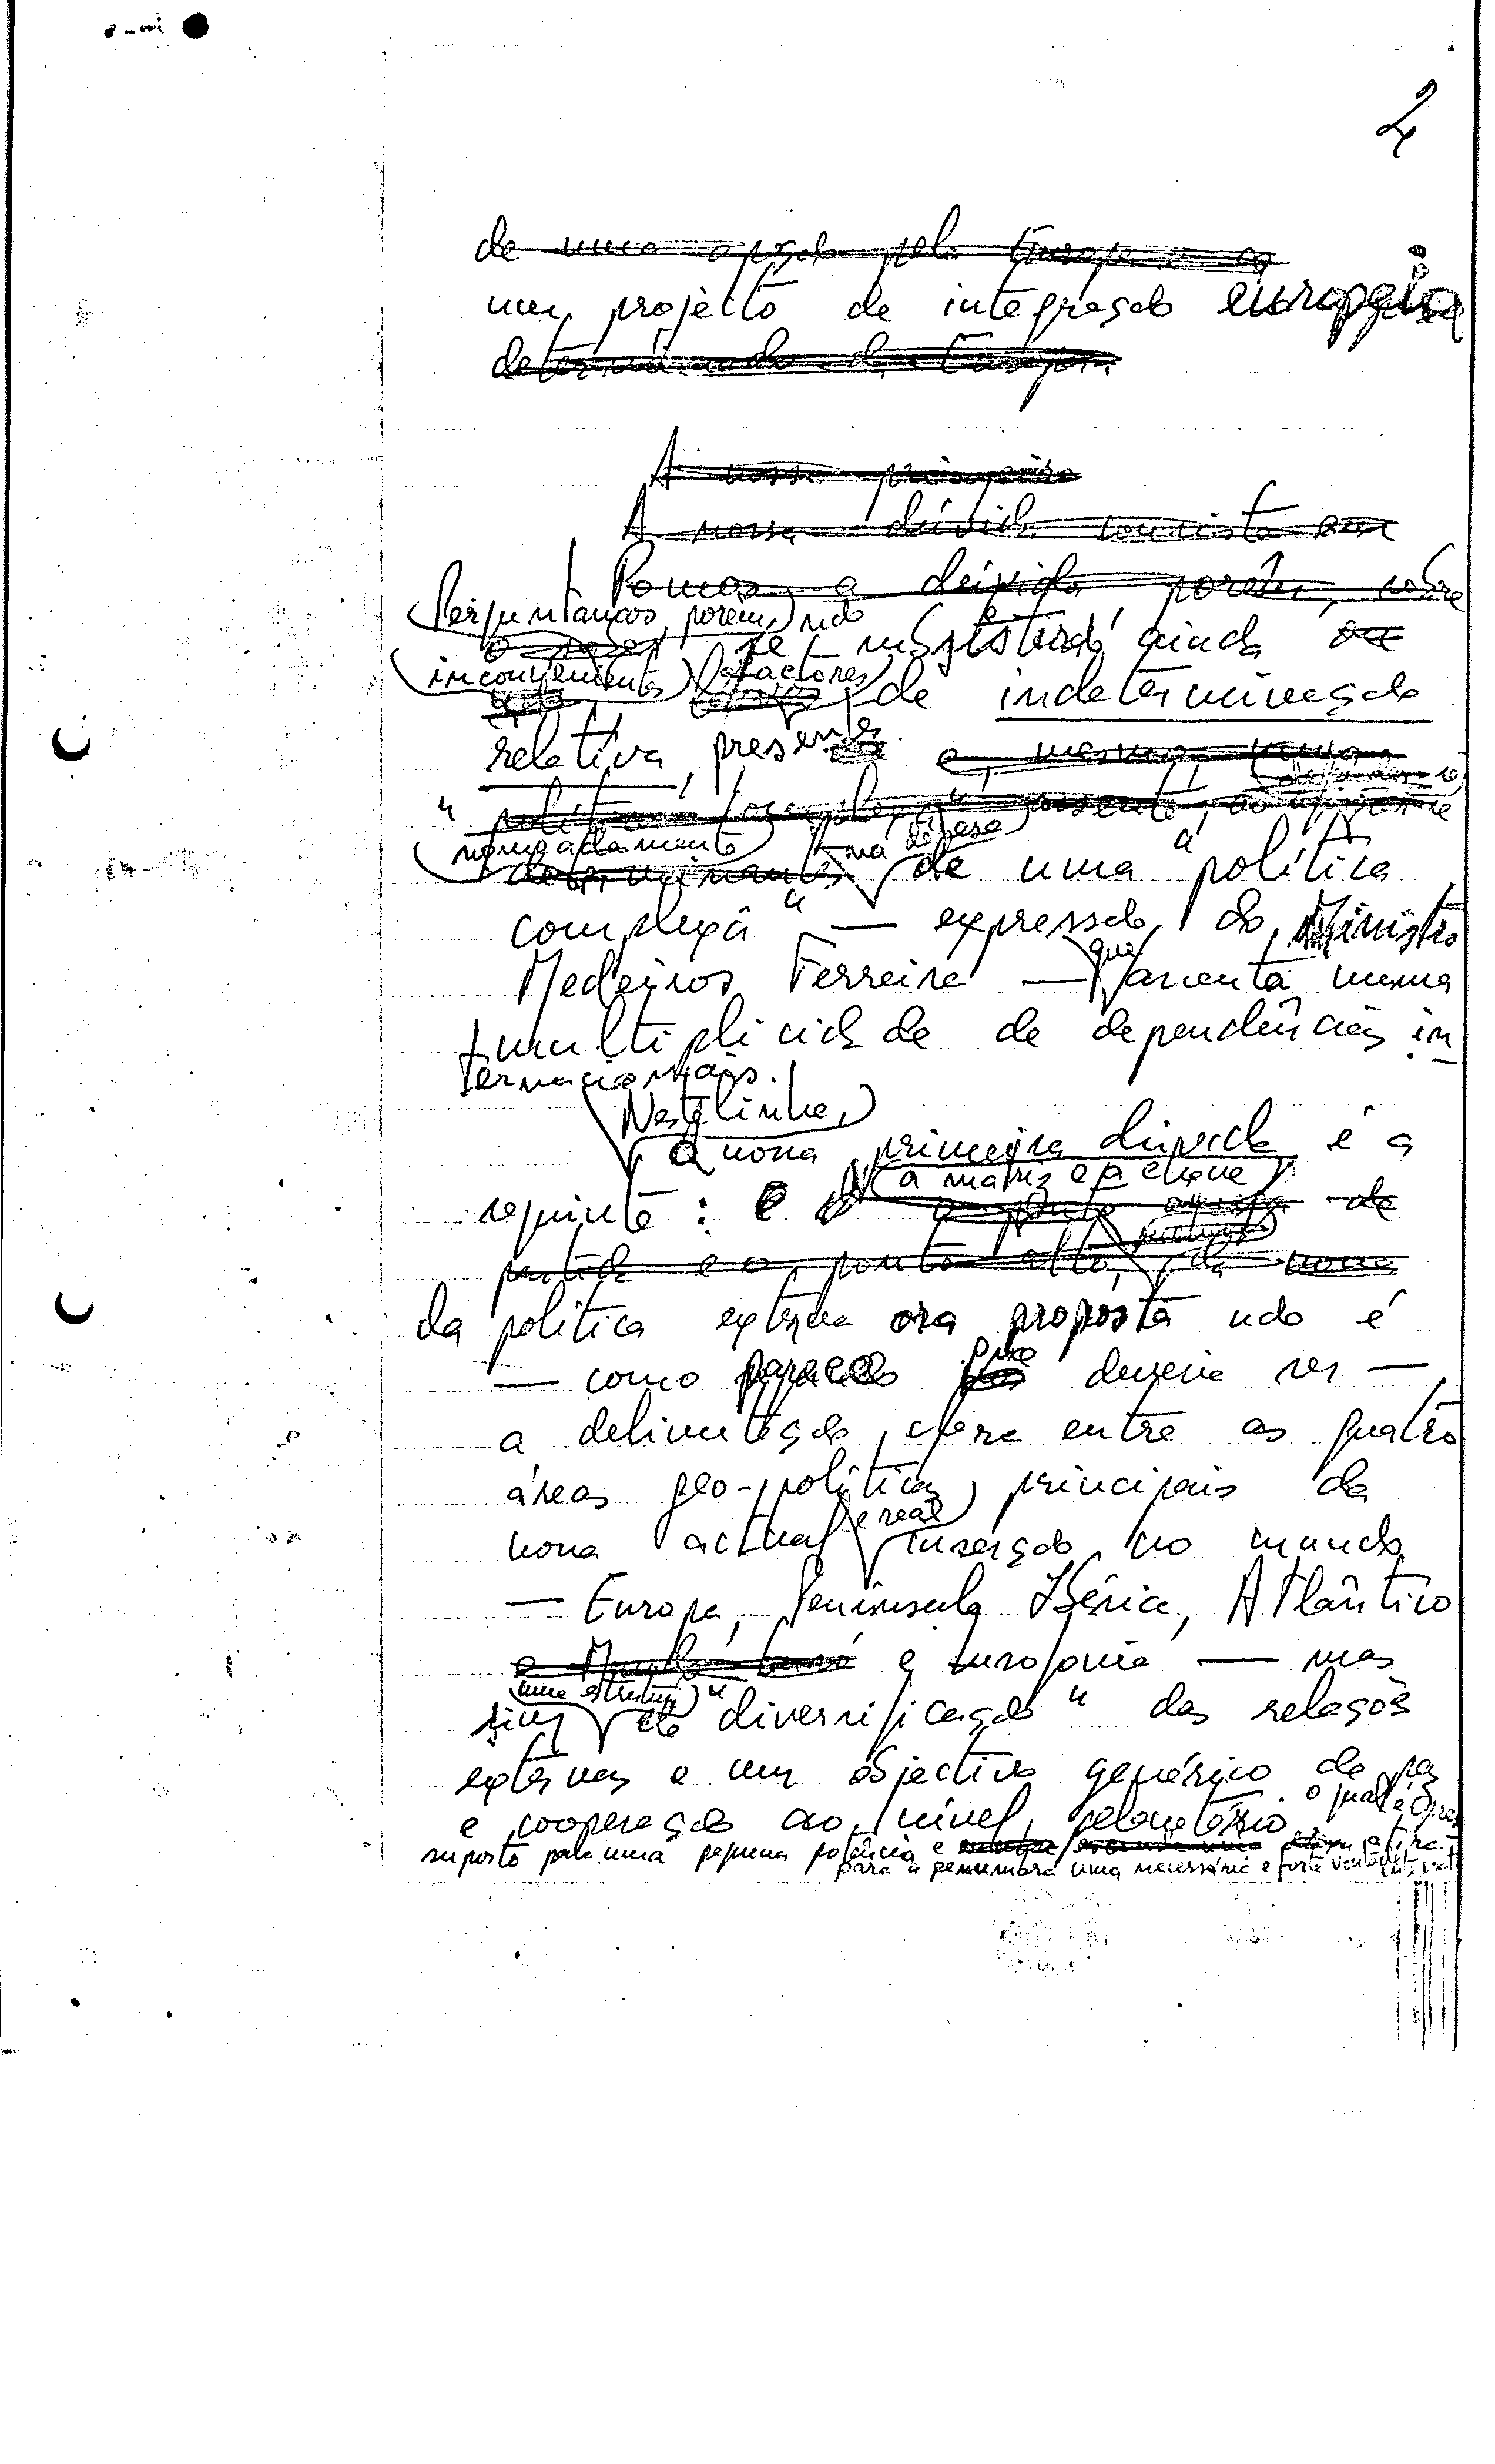 2
de uma opção pela Europa e a
um projecto de integração europeia
A nossa
A nossa dúvida consiste em
Pomos a dúvida porém, sobre
Perguntamos, porém, não
se subsistirá ainda
inconvenientes factores
de indeterminação
relativa, presentes. e, mesmo,
nomeadamente na defesa
de uma "política
complexa" — expressão do Ministro
Medeiros Ferreira — que assenta numa
multiplicidade de dependências in
ternacionais.
Nesta linha,
A nossa primeira dúvida é a
seguinte: a matriz e a chave
partida e o ponto alto, da nossa
da política externa ora proposta não é
— como parece que deveria ser —
a delimitação clara entre as quatro
áreas geo-políticas principais da
nossa actual e real inserção no mundo
— Europa, Península Ibérica, Atlântico
e lusofonia — mas
sim uma estrutura de "diversificação" das relações
externas e um objectivo genérico de paz
e cooperação ao nível planetário o qual é
suposto para uma pequena potência e atira
para a penumbra uma necessária e forte vontade